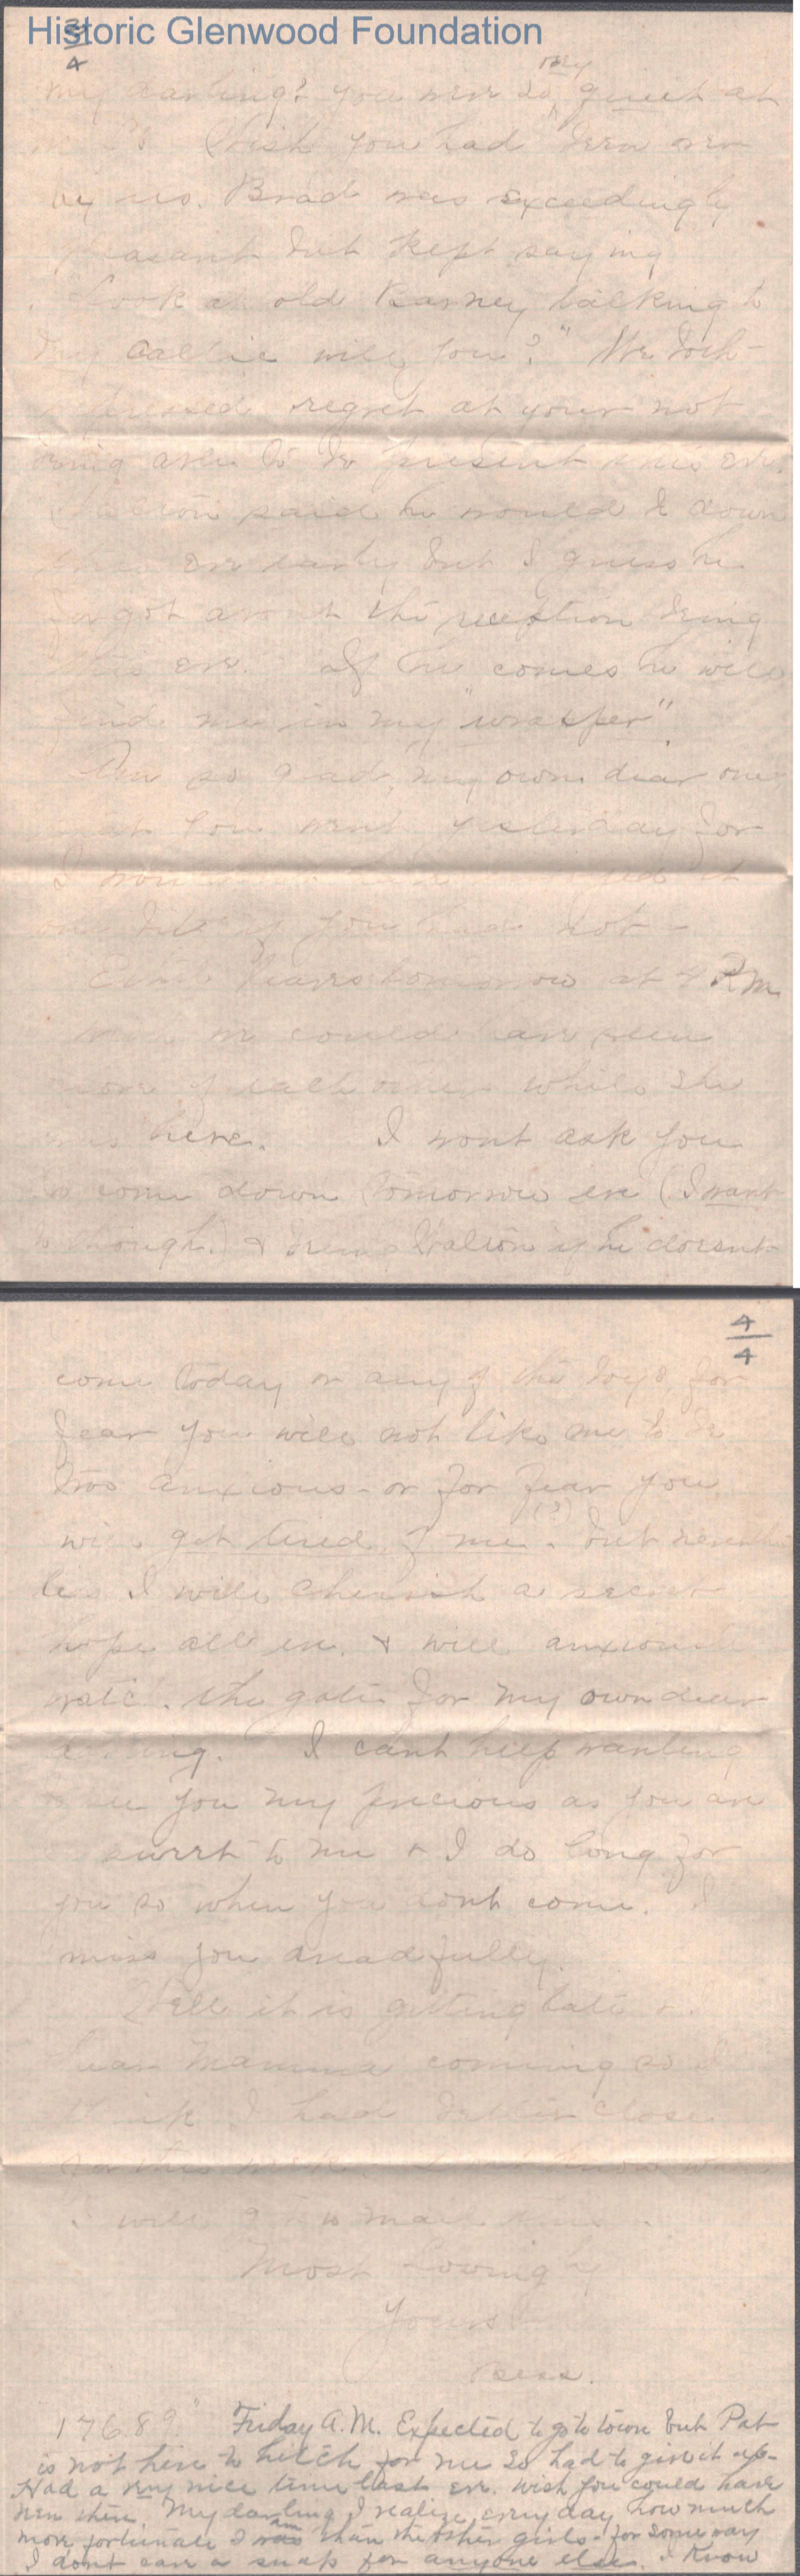 Historic Glenwood Foundation
3/4
my darling? you were so very quiet at
Wish you had been over
by us. Brad was exceedingly
pleasant but kept saying
"Look at old Barney talking to
my Callie will you?" We both
expressed regret at your not
being able to be present this eve.
Walton said he would be down
this eve early but I guess he
forgot about the reception being
this eve. If he comes he will
find me in my "wrapper".
Am so glad, my own dear one
that you went yesterday for
I
if you had not -
leaves tomorrow at 4 P.M.
wish we could have seen
more of each other while she
was here. I wont ask you
to come down tomorrow eve (I want
to though.) & Walton if he doesnt
4/4
come today or any of the boys for
fear you will not like me to be
too anxious - or for fear you
will get tired of me (?). but neverthe
less I will cherish a secret
hope all eve. & will anxiously
watch the gate for my own dear
darling. I cant help wanting
to see you my precious as you are
sweet to me & I do long for
you so when you dont come. I
miss you dreadfully.
Well it is getting late & I
hear Mamma coming so I
think I had better close
for this
I will to mail this.
Most Lovingly
Yours
Bess.
"17689" Friday A.M. Expected to go to town but Pat
is not here to hitch for me so had to give it up -
Had a very nice time last eve. wish you could have
been there. My darling I realize every day how much
more fortunate I am than the other girls - for some way
I dont care a snap for anyone else. I know